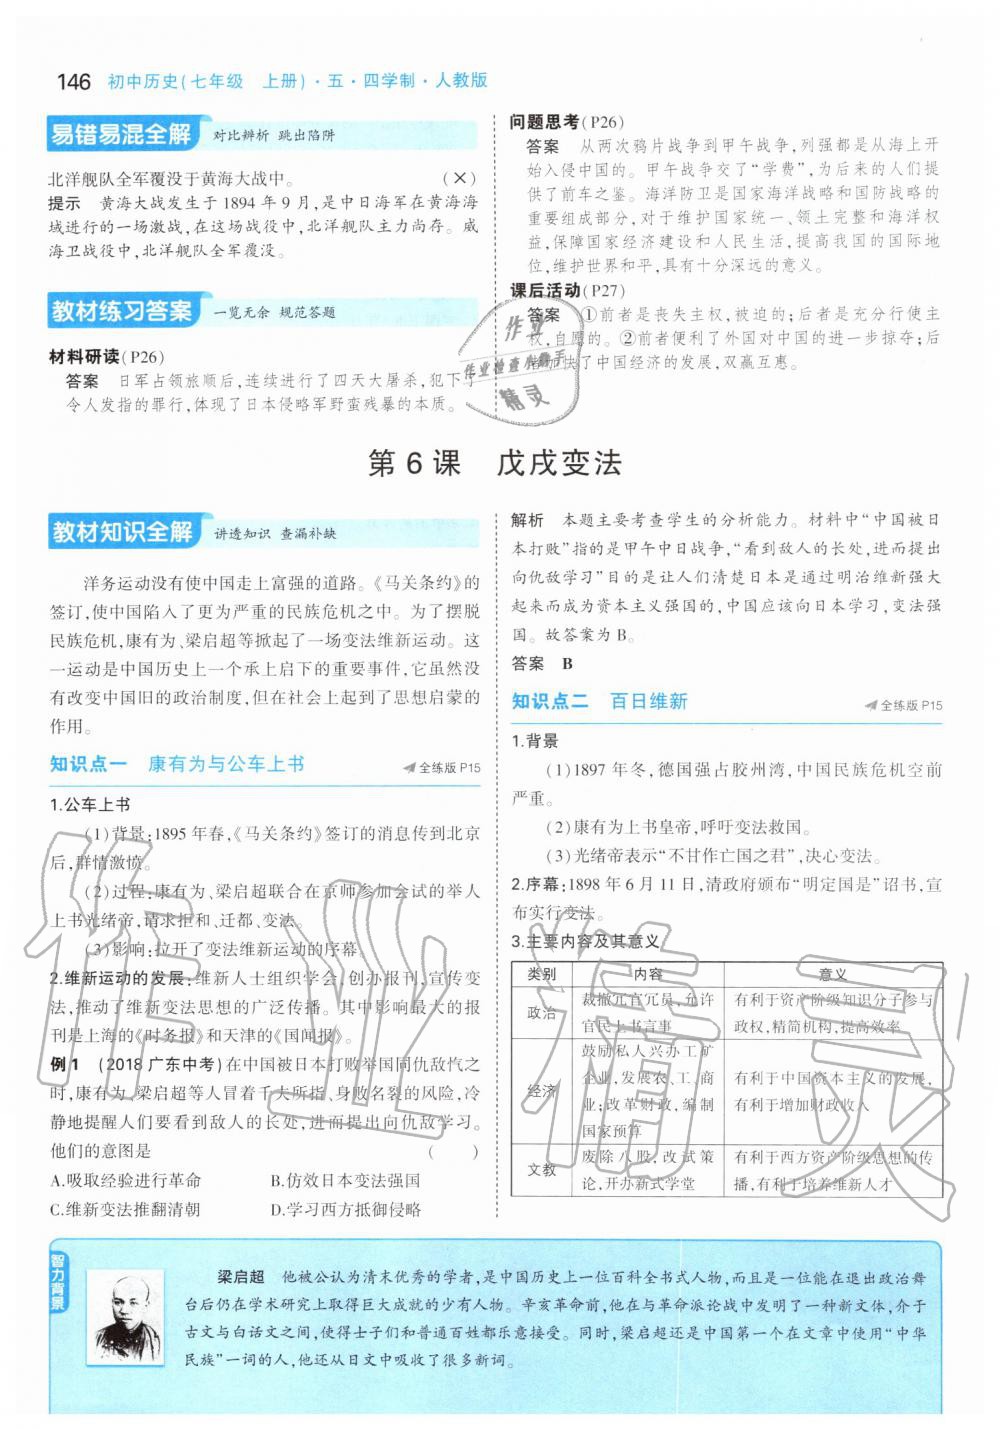 146 初中历史(七年级 上册)·五·四学制·人教版
易错易混全解 对比辨析 跳出陷阱
北洋舰队全军覆没于黄海大战中。 (×)
提示 黄海大战发生于 1894 年 9 月,是中日海军在黄海海
域进行的一场激战,在这场战役中,北洋舰队主力尚存。威
海卫战役中,北洋舰队全军覆没。
教材练习答案 一览无余 规范答题
材料研读(P26)
答案 日军占领旅顺后,连续进行了四天大屠杀,犯下了
令人发指的罪行,体现了日本侵略军野蛮残暴的本质。
问题思考(P26)
答案 从两次鸦片战争到甲午战争,列强都是从海上开
始入侵中国的。甲午战争交了“学费”,为后来的人们提
供了前车之鉴。海洋防卫是国家海洋战略和国防战略的
重要组成部分,对于维护国家统一、领土完整和海洋权
益,保障国家经济建设和人民生活,提高我国的国际地
位,维护世界和平,具有十分深远的意义。
课后活动(P27)
答案 ①前者是丧失主权,被迫的;后者是充分行使主
权,自愿的。②前者便利了外国对中国的进一步掠夺;后
者加快了中国经济的发展,双赢互惠。
作业
作业检查小帮手
精灵
第 6 课 戊戌变法
教材知识全解 讲透知识 查漏补缺
洋务运动没有使中国走上富强的道路。《马关条约》的
签订,使中国陷入了更为严重的民族危机之中。为了摆脱
民族危机,康有为、梁启超等掀起了一场变法维新运动。这
一运动是中国历史上一个承上启下的重要事件,它虽然没
有改变中国旧的政治制度,但在社会上起到了思想启蒙的
作用。
知识点一 康有为与公车上书 全练版 P15
1.公车上书
(1)背景:1895 年春,《马关条约》签订的消息传到北京
后,群情激愤。
(2)过程:康有为、梁启超联合在京师参加会试的举人
上书光绪帝,请求拒和、迁都、变法。
(3)影响:拉开了变法维新运动的序幕。
2.维新运动的发展:维新人士组织学会,创办报刊,宣传变
法,推动了维新变法思想的广泛传播。其中影响最大的报
刊是上海的《时务报》和天津的《国闻报》。
例 1 (2018 广东中考)在中国被日本打败举国同仇敌忾之
时,康有为、梁启超等人冒着千夫所指、身败名裂的风险,冷
静地提醒人们要看到敌人的长处,进而提出向仇敌学习。
他们的意图是 ( )
A.吸取经验进行革命 B.仿效日本变法强国
C.维新变法推翻清朝 D.学习西方抵御侵略
解析 本题主要考查学生的分析能力。材料中“中国被日
本打败”指的是甲午中日战争,“看到敌人的长处,进而提出
向仇敌学习”目的是让人们清楚日本是通过明治维新强大
起来而成为资本主义强国的,中国应该向日本学习,变法强
国。故答案为 B。
答案 B
知识点二 百日维新 全练版 P15
1.背景
(1)1897 年冬,德国强占胶州湾,中国民族危机空前
严重。
(2)康有为上书皇帝,呼吁变法救国。
(3)光绪帝表示“不甘作亡国之君”,决心变法。
2.序幕:1898 年 6 月 11 日,清政府颁布“明定国是”诏书,宣
布实行变法。
3.主要内容及其意义
类别 内容 意义
政治
裁撤冗官冗员,允许
官民上书言事
有利于资产阶级知识分子参与
政权,精简机构,提高效率
经济
鼓励私人兴办工矿
企业,发展农、工、商
业;改革财政,编制
国家预算
有利于中国资本主义的发展,
有利于增加财政收入
文教
废除八股,改试策
论,开办新式学堂
有利于西方资产阶级思想的传
播,有利于培养维新人才
作业精灵
智力背景
梁启超 他被公认为清末优秀的学者,是中国历史上一位百科全书式人物,而且是一位能在退出政治舞
台后仍在学术研究上取得巨大成就的少有人物。辛亥革命前,他在与革命派论战中发明了一种新文体,介于
古文与白话文之间,使得士子们和普通百姓都乐意接受。同时,梁启超还是中国第一个在文章中使用“中华
民族”一词的人,他还从日文中吸收了很多新词。